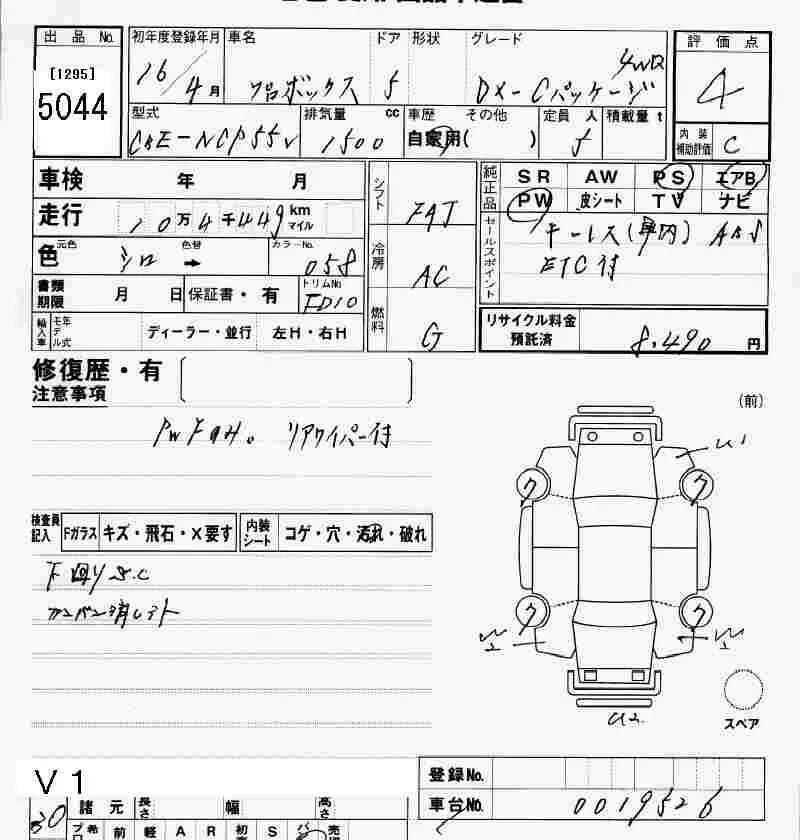 出品 No.
[1295]
5044
初年度登録年月
16/4月
車名
プロボックス
ドア
5
形状
グレード
4WD
DX-Cパッケージ
評価点
4
内装補助評価
C
型式
CBE-NCP55V
排気量 cc
1500
車歴 その他
自家用( )
定員 人
5
積載量 t
車検 年 月
走行 10万4千449 km マイル
色 元色 シロ 色替 → カラーNo. 058
書類期限 月 日 保証書・有 トリムNo FD10
輸入車 モデル年式 ディーラー・並行 左H・右H
シフト FAT
冷房 AC
燃料 G
純正品 SR AW PS エアB
PW 皮シート TV ナビ
セールスポイント
キーレス(車内) ABS
ETC付
リサイクル料金預託済
8,490 円
修復歴・有
注意事項
リアワイパー付
(前)
ク
ク
ク
ク
U2.
スペア
検査員記入 Fガラス キズ・飛石・X要す 内装シート コゲ・穴・汚れ・破れ
下回りS.C
カンバン消しアト
V 1
登録No.
車台No. 0019526
30 諸元 長さ 幅 高さ
プロ 希 前 軽 A R 初 S